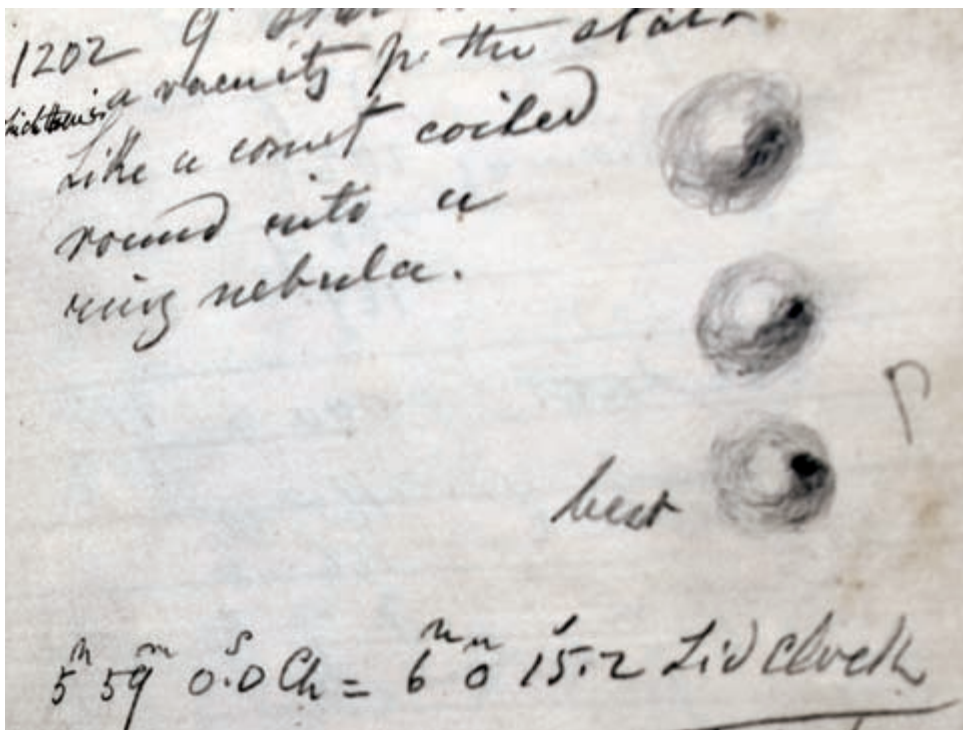 1202 9' star
a vacuity p. the star
Like a comet coiled
round into a
ring nebula.
p
best
5h 59m 0.s0 Ch = 6h 0m 15.s2 Sid clock